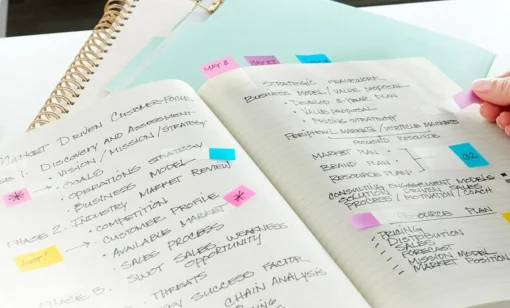 MARKET DRIVEN CUSTOMER FOCUS
PHASE 1: DISCOVERY AND ASSESSMENT
• VISION / MISSION / STRATEGY
• GOALS
• OPERATIONS STRATEGY
• BUSINESS MODEL
• INDUSTRY MARKET REVIEW
PHASE 2:
• COMPETITION
• CUSTOMER PROFILE
• AVAILABLE MARKET
• SALES PROCESS
• SALES WEAKNESS
• SWOT OPPORTUNITY
• THREATS
PHASE 3:
KEY SUCCESS FACTOR
CHAIN ANALYSIS
*
*
HOT!
MAY 8
STRATEGIC FRAMEWORK
BUSINESS MODEL / VALUE PROPOSAL
• DEVELOP 3 YEAR PLAN
• VALUE PROPOSAL
• PRICING STRATEGY
PERIPHERAL MARKETS / VERTICLE MARKETS
FOCUSED RESOURCE
MARKET PLAN •
BRAND PLAN •
RESOURCE PLAN •
Q2
CONSULTING ENGAGEMENT MODELS
SOLUTION DRIVEN SALES
PROCESS / MOTIVATION / COACH
RESOURCE PLAN
✓ PRICING
✓ DISTRIBUTION
✓ SALES
✓ FORECAST
✓ MISSION MODEL
✓ MARKET POSITION